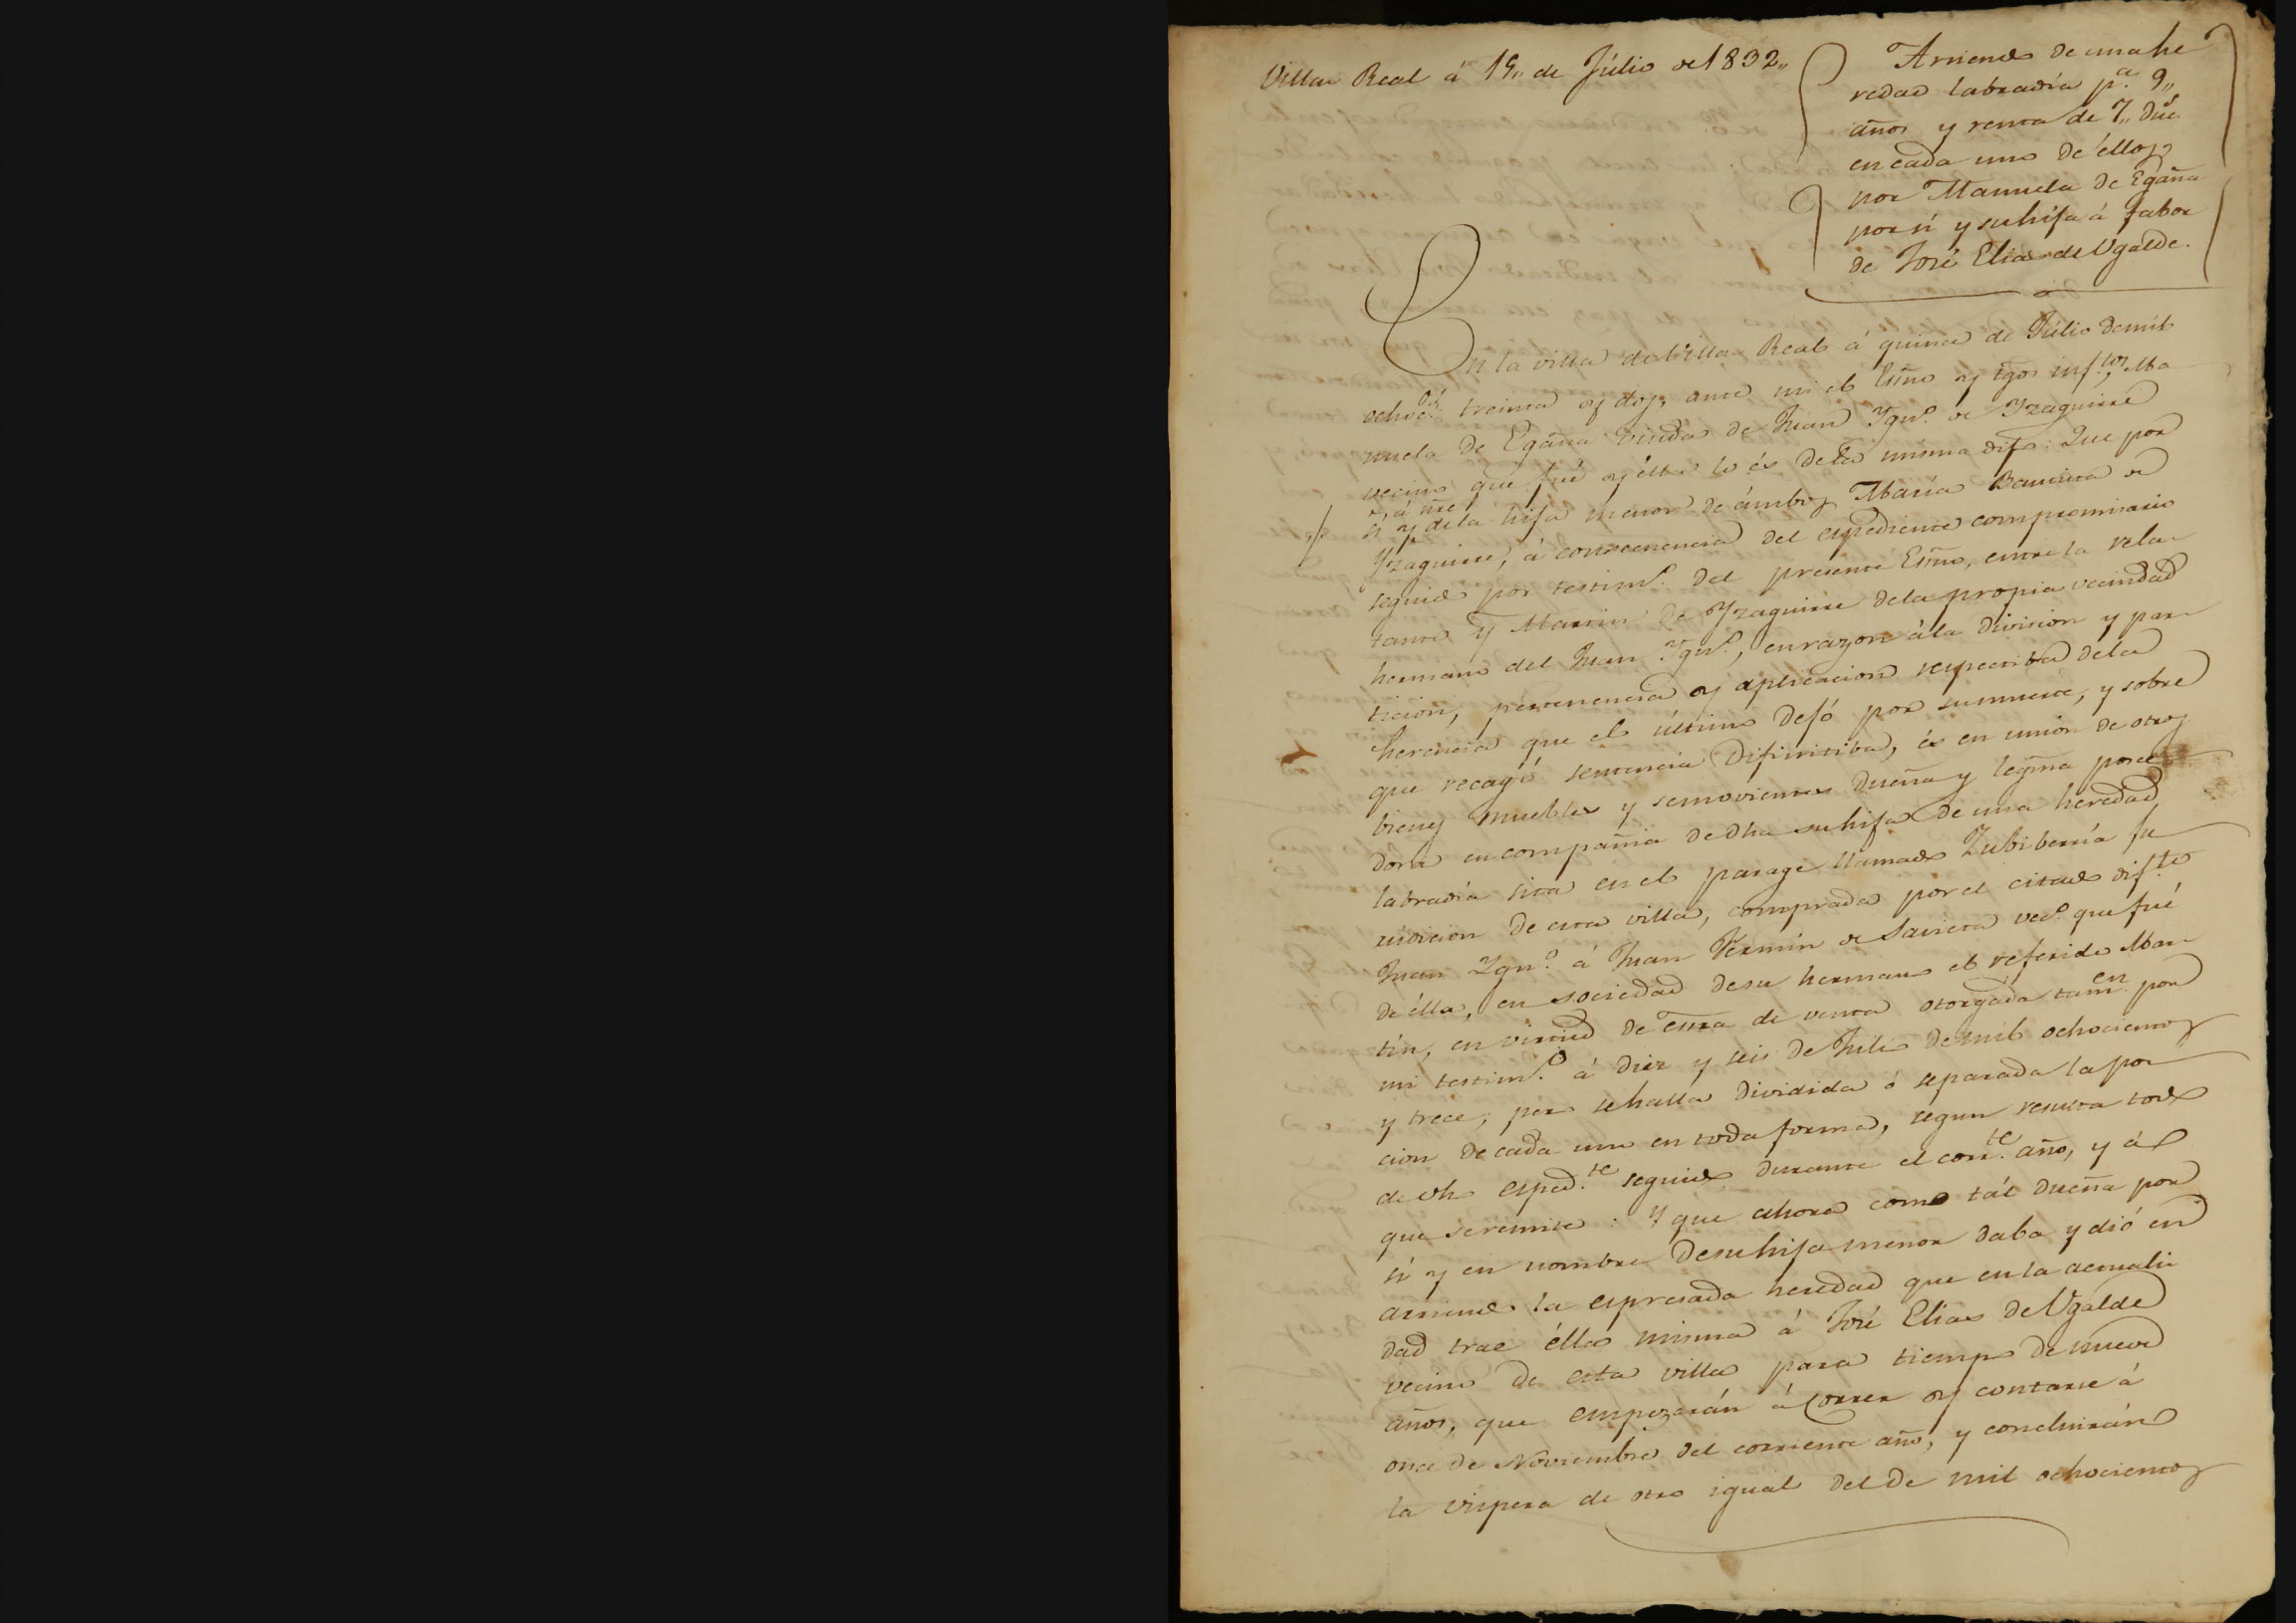 Villa Real á 15,, de Júlio de 1832,,
Arriendo de una he
redad labradia pª. 9,,
años y renta de 7,, Duc.
en cada uno de éllos,
por Manuela de Egaña
por sí y su hija á fabor
de José Elias de Ugalde.
En la villa de Villa Real á quince de Júlio de mil
ochoc.os treinta y dos, ante mi el Esño y tgos inf.tos, Ma
nuela de Egaña viuda de Juan Ygn.º de Yzaguirre
vecino que fué y élla lo és de la misma dijo: Que por
sí y de la hija menor de ámbos María Bautista de
Yzaguirre, á consecuencia del espediente compromisario
seguido por testim.º del presente Esño, entre la rela-
tante y Martin de Yzaguirre de la propia vecindad
hermano del Juan Ygn.º, en razon á la division y par-
ticion, pertenencia y aplicacion respectiba de la
herencia que el último dejó por su muerte, y sobre
que recayó sentencia difinitiba, és en union de otros
bienes muebles y semovientes dueña y legma posee
dora en compañia de dha su hija de una heredad
labradía sita en el parage llamado Zubiberría ju
risdicion de esta villa, comprada por el citado dif.to
Juan Ygn.º á Juan Fermin de Savieta vec.º que fué
de élla, en sociedad de su hermano el referido Mar-
tin, en virtud de esra de venta otorgada tam.en por
mi testim.º á diez y seis de Julio de mil ochocientos
y trece; pero se halla dividida ó separada la por
cion de cada uno en toda forma, segun resulta todo
de dho esped.te seguido durante el corr.te año, y á
que se remite: Y que ahora como tál dueña por
sí y en nombre de su hija menor daba y dió en
arriendo la espresada heredad que en la actuali
dad trae élla misma á José Elias de Ugalde
vecino de esta villa para tiempo de nueve
años, que empezarán á correr y contarse á
once de Noviembre del corriente año, y concluirán
la vispera de otro igual del de mil ochocientos